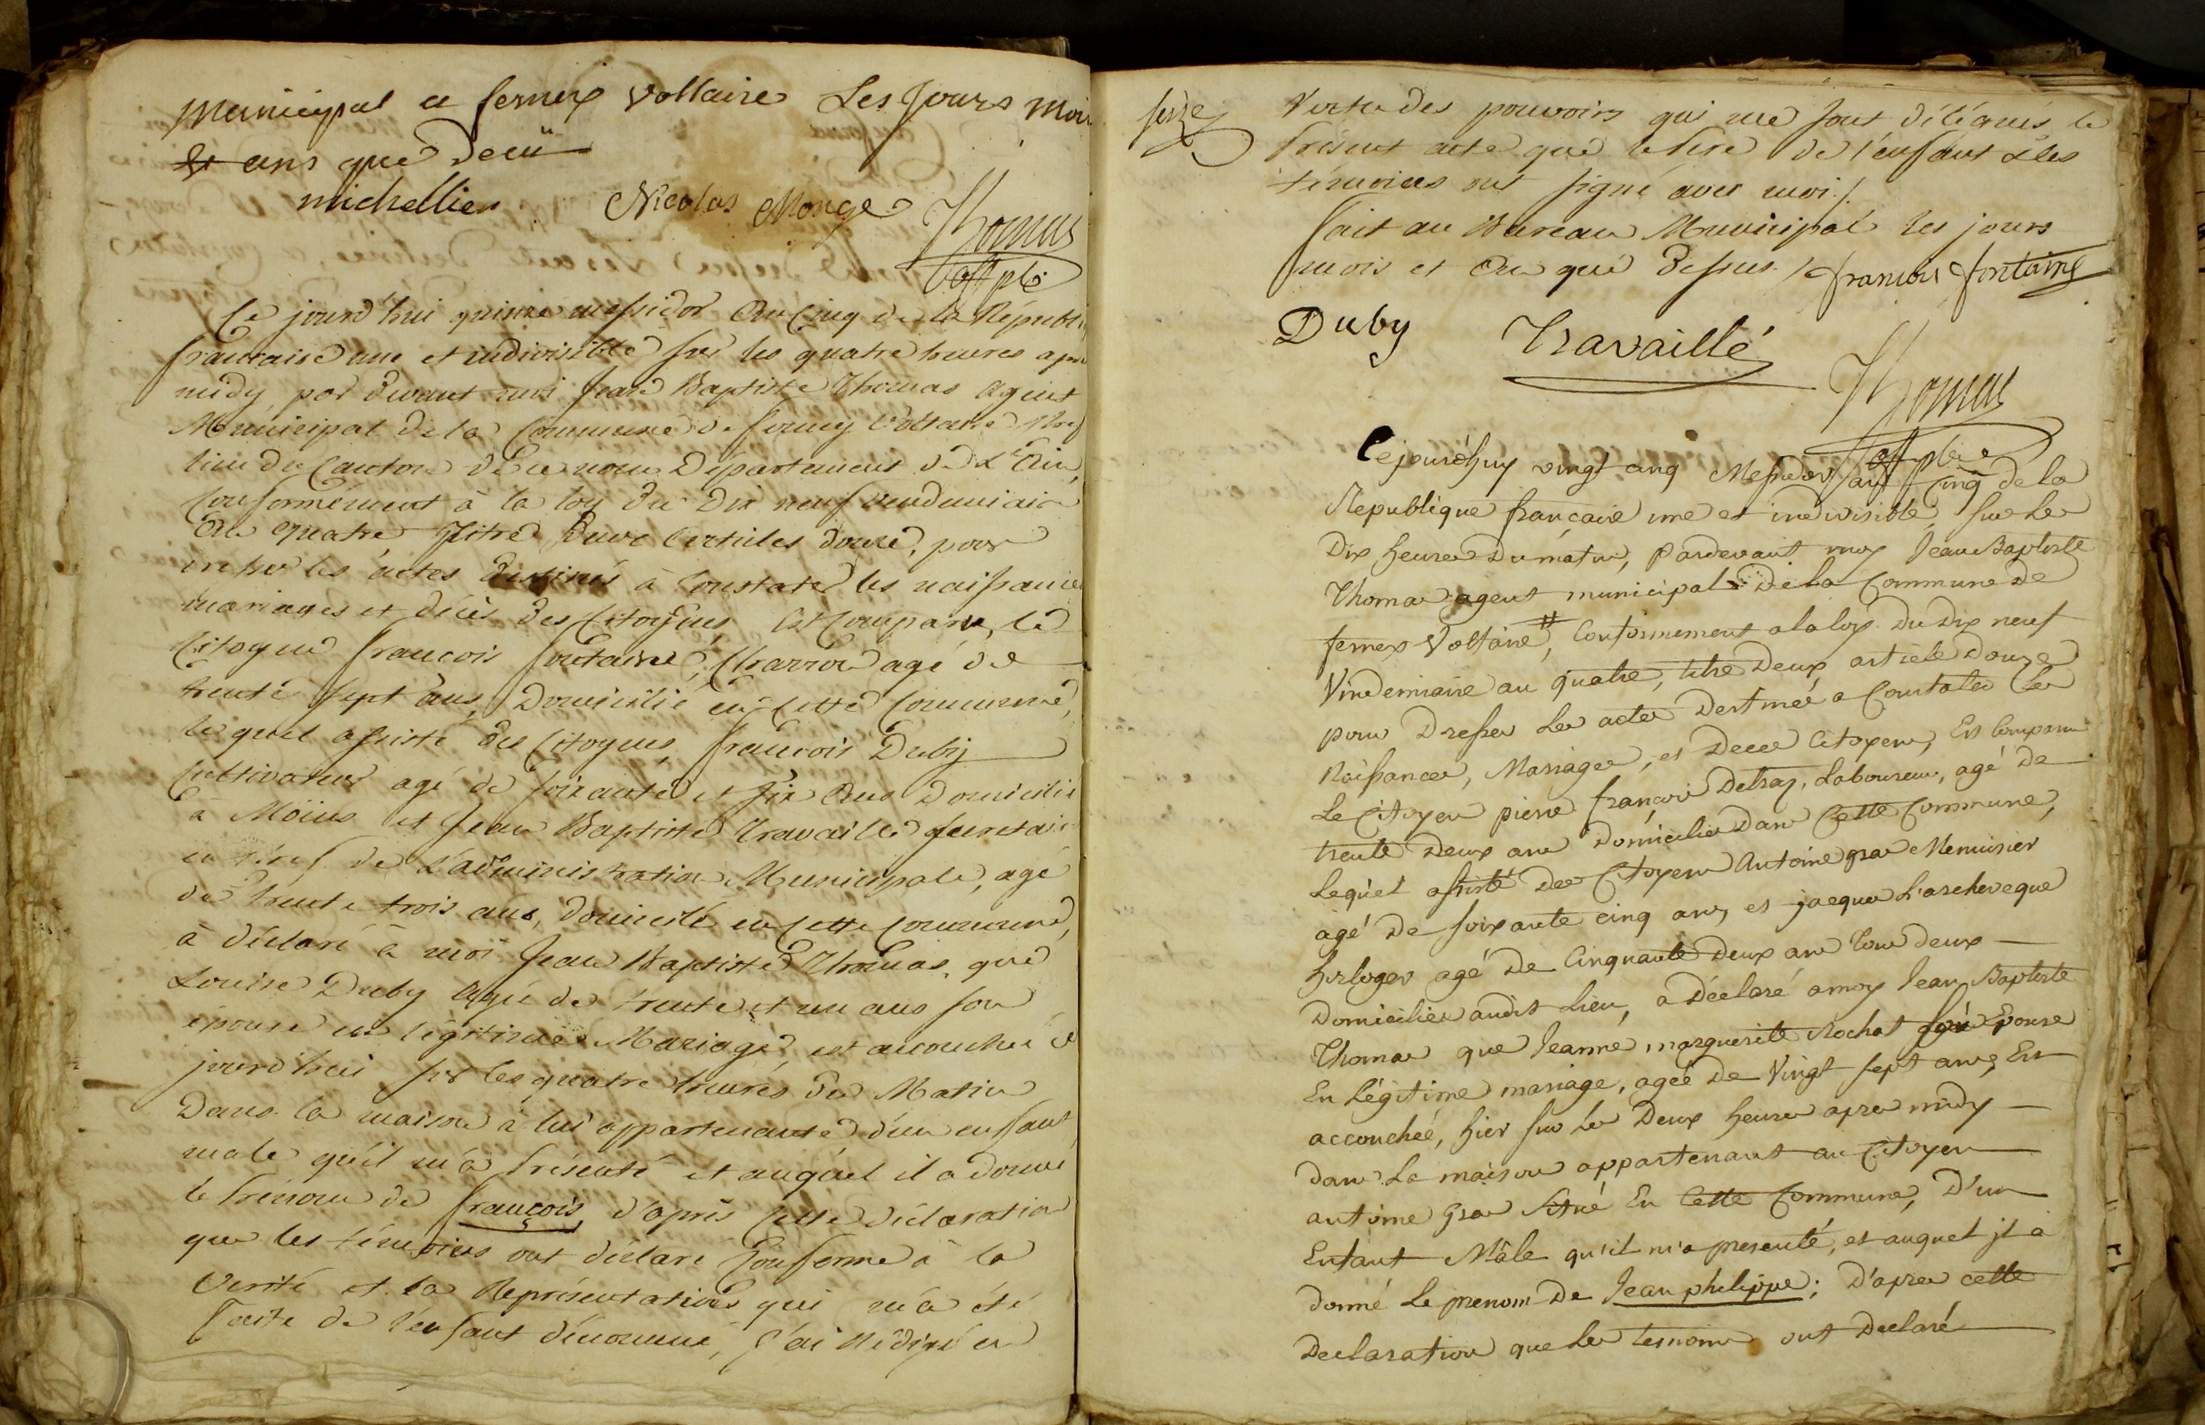 Municipal a fernex Voltaire Les Jours Moi
ans que dessü
michellier Nicolas Monge Thomas
off plc
Ce jourd'hui quinze messidor An Cinq de la Républi
française une et indivisible sur les quatre heures apr
midy par devant moi Jean Baptiste Thomas agent
Municipal de la Commune de ferney Voltaire chef
lieu du Canton de ce nom Département de L'Ain
Conformément à la loy du Dix neuf vendemiair
An quatre Titre Deux Articles douze, pour
les actes destinés à Constater les naissances
mariages et décès des Citoyens, Est Comparu, le
Citoyen francois fontaine, Charron agé de
trente sept ans, Domicilié en Cette Commune,
lequel assisté des Citoyens francois Duby
Cultivateur agé de soixante et six Ans Domicilié
à Moëns et Jean Baptiste Travaillé secretair
en chef de L'administration Municipale, agé
de trente trois ans, domicilié en Cette Commune,
à déclaré à moi Jean Baptiste Thomas, que
Louise Duby agée de trente et un ans son
épouse en légitime Mariage, est accouchée ce
jourd'hui sur les quatre heures du Matin
Dans la maison à lui appartenante d'un enfant
male qu'il m'a présenté et auquel il a donné
le Prénom de françois, d'après cette déclaration
que les témoins ont déclaré Conforme à la
verité et la Représentation qui m'a été
faite de l'enfant dénommé, j'ai Rédigé en
seize
Vertu des pouvoirs qui me sont délégués le
Présent acte que le Pere de l'enfant & les
témoins ont signé avec moi ./.
fait au Bureau Municipal les jours
mois et An que dessus ./. francois fontaine
Duby Travaillé Thomas
off plc
Cejourd'huy vingt cinq Messidor an Cinq de la
Republique francaise une et indivisible, sur Les
Dix heures Du matin, Pardevant moy Jean Baptiste
Thomas agent municipal De la Commune de
fernex Voltaire #, Conformement a la loy du Dix neuf
Vindemiaire an quatre, titre Deux, article Douze
pour Dresser Les actes Destinés a Constater Les
Naissances, Mariages, et Deces Citoyens, Est Comparu
Le Citoyen pierre françois Delraz, Laboureur, agé de
trente Deux ans Domicilié Dans Cette Commune,
Lequel assisté Des Citoyens Antoine gras Menuisier
agé De soixante cinq ans, et jacques L'archeveque
horloger agé De Cinquante Deux ans tous Deux
Domiciliés audit Lieu, a Déclaré a moy Jean Baptiste
Thomas que Jeanne marguerite Rochat son Epouse
En Légitime mariage, ageé De Vingt sept ans, Est
accouchée, hier sur Les Deux heures apres midy
dans La maison appartenant au Citoyen
antoine Gras Situé En Cette Commune, D'un
Enfant Mâle qu'il m'a presenté, et auquel jl a
donné Le prenom De Jean philippe; D'apres cette
Declaration que Les temoins ont Declaré